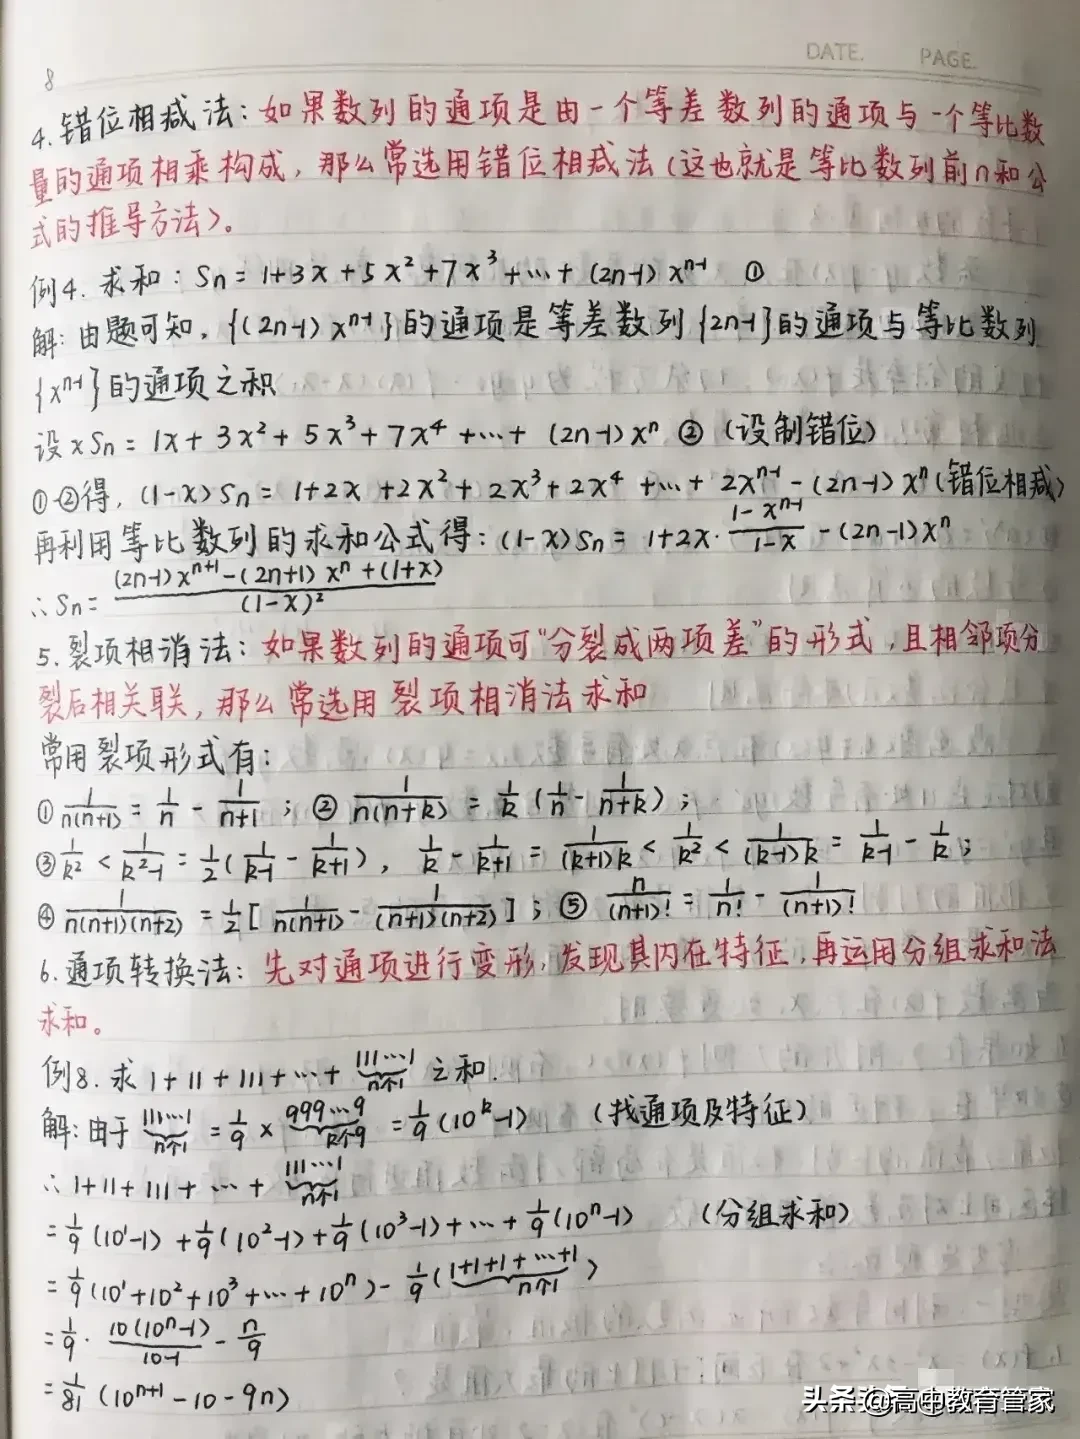 DATE. PAGE.
8
4.错位相减法:如果数列的通项是由一个等差数列的通项与一个等比数
量的通项相乘构成,那么常选用错位相减法(这也就是等比数列前n和公
式的推导方法)。
例4.求和:Sn=1+3x+5x²+7x³+…+(2n-1)xⁿ⁻¹ ①
解:由题可知,{(2n-1)xⁿ⁻¹}的通项是等差数列{2n-1}的通项与等比数列
{xⁿ⁻¹}的通项之积
设xSn=1x+3x²+5x³+7x⁴+…+(2n-1)xⁿ ②(设制错位)
①-②得,(1-x)Sn=1+2x+2x²+2x³+2x⁴+…+2xⁿ⁻¹-(2n-1)xⁿ(错位相减)
再利用等比数列的求和公式得:(1-x)Sn=1+2x·(1-xⁿ⁻¹)/(1-x)-(2n-1)xⁿ
∴Sn=((2n-1)xⁿ⁺¹-(2n+1)xⁿ+(1+x))/(1-x)²
5.裂项相消法:如果数列的通项可“分裂成两项差”的形式,且相邻项分
裂后相关联,那么常选用裂项相消法求和
常用裂项形式有:
①1/n(n+1)=1/n-1/(n+1);②1/n(n+k)=1/k(1/n-1/(n+k));
③1/k²<1/(k²-1)=1/2(1/(k-1)-1/(k+1)),1/k-1/(k+1)=1/(k+1)k<1/k²<1/(k-1)k=1/(k-1)-1/k;
④1/n(n+1)(n+2)=1/2[1/n(n+1)-1/(n+1)(n+2)];⑤n/(n+1)!=1/n!-1/(n+1)!
6.通项转换法:先对通项进行变形,发现其内在特征,再运用分组求和法
求和。
例8.求1+11+111+…+111…1(n个1)之和.
解:由于111…1(n个1)=1/9×999…9(k个9)=1/9(10ᵏ-1) (找通项及特征)
∴1+11+111+…+111…1(n个1)
=1/9(10¹-1)+1/9(10²-1)+1/9(10³-1)+…+1/9(10ⁿ-1) (分组求和)
=1/9(10¹+10²+10³+…+10ⁿ)-1/9(1+1+1+…+1(n个1))
=1/9·10(10ⁿ-1)/(10-1)-n/9
=1/81(10ⁿ⁺¹-10-9n)
头条@高中教育管家